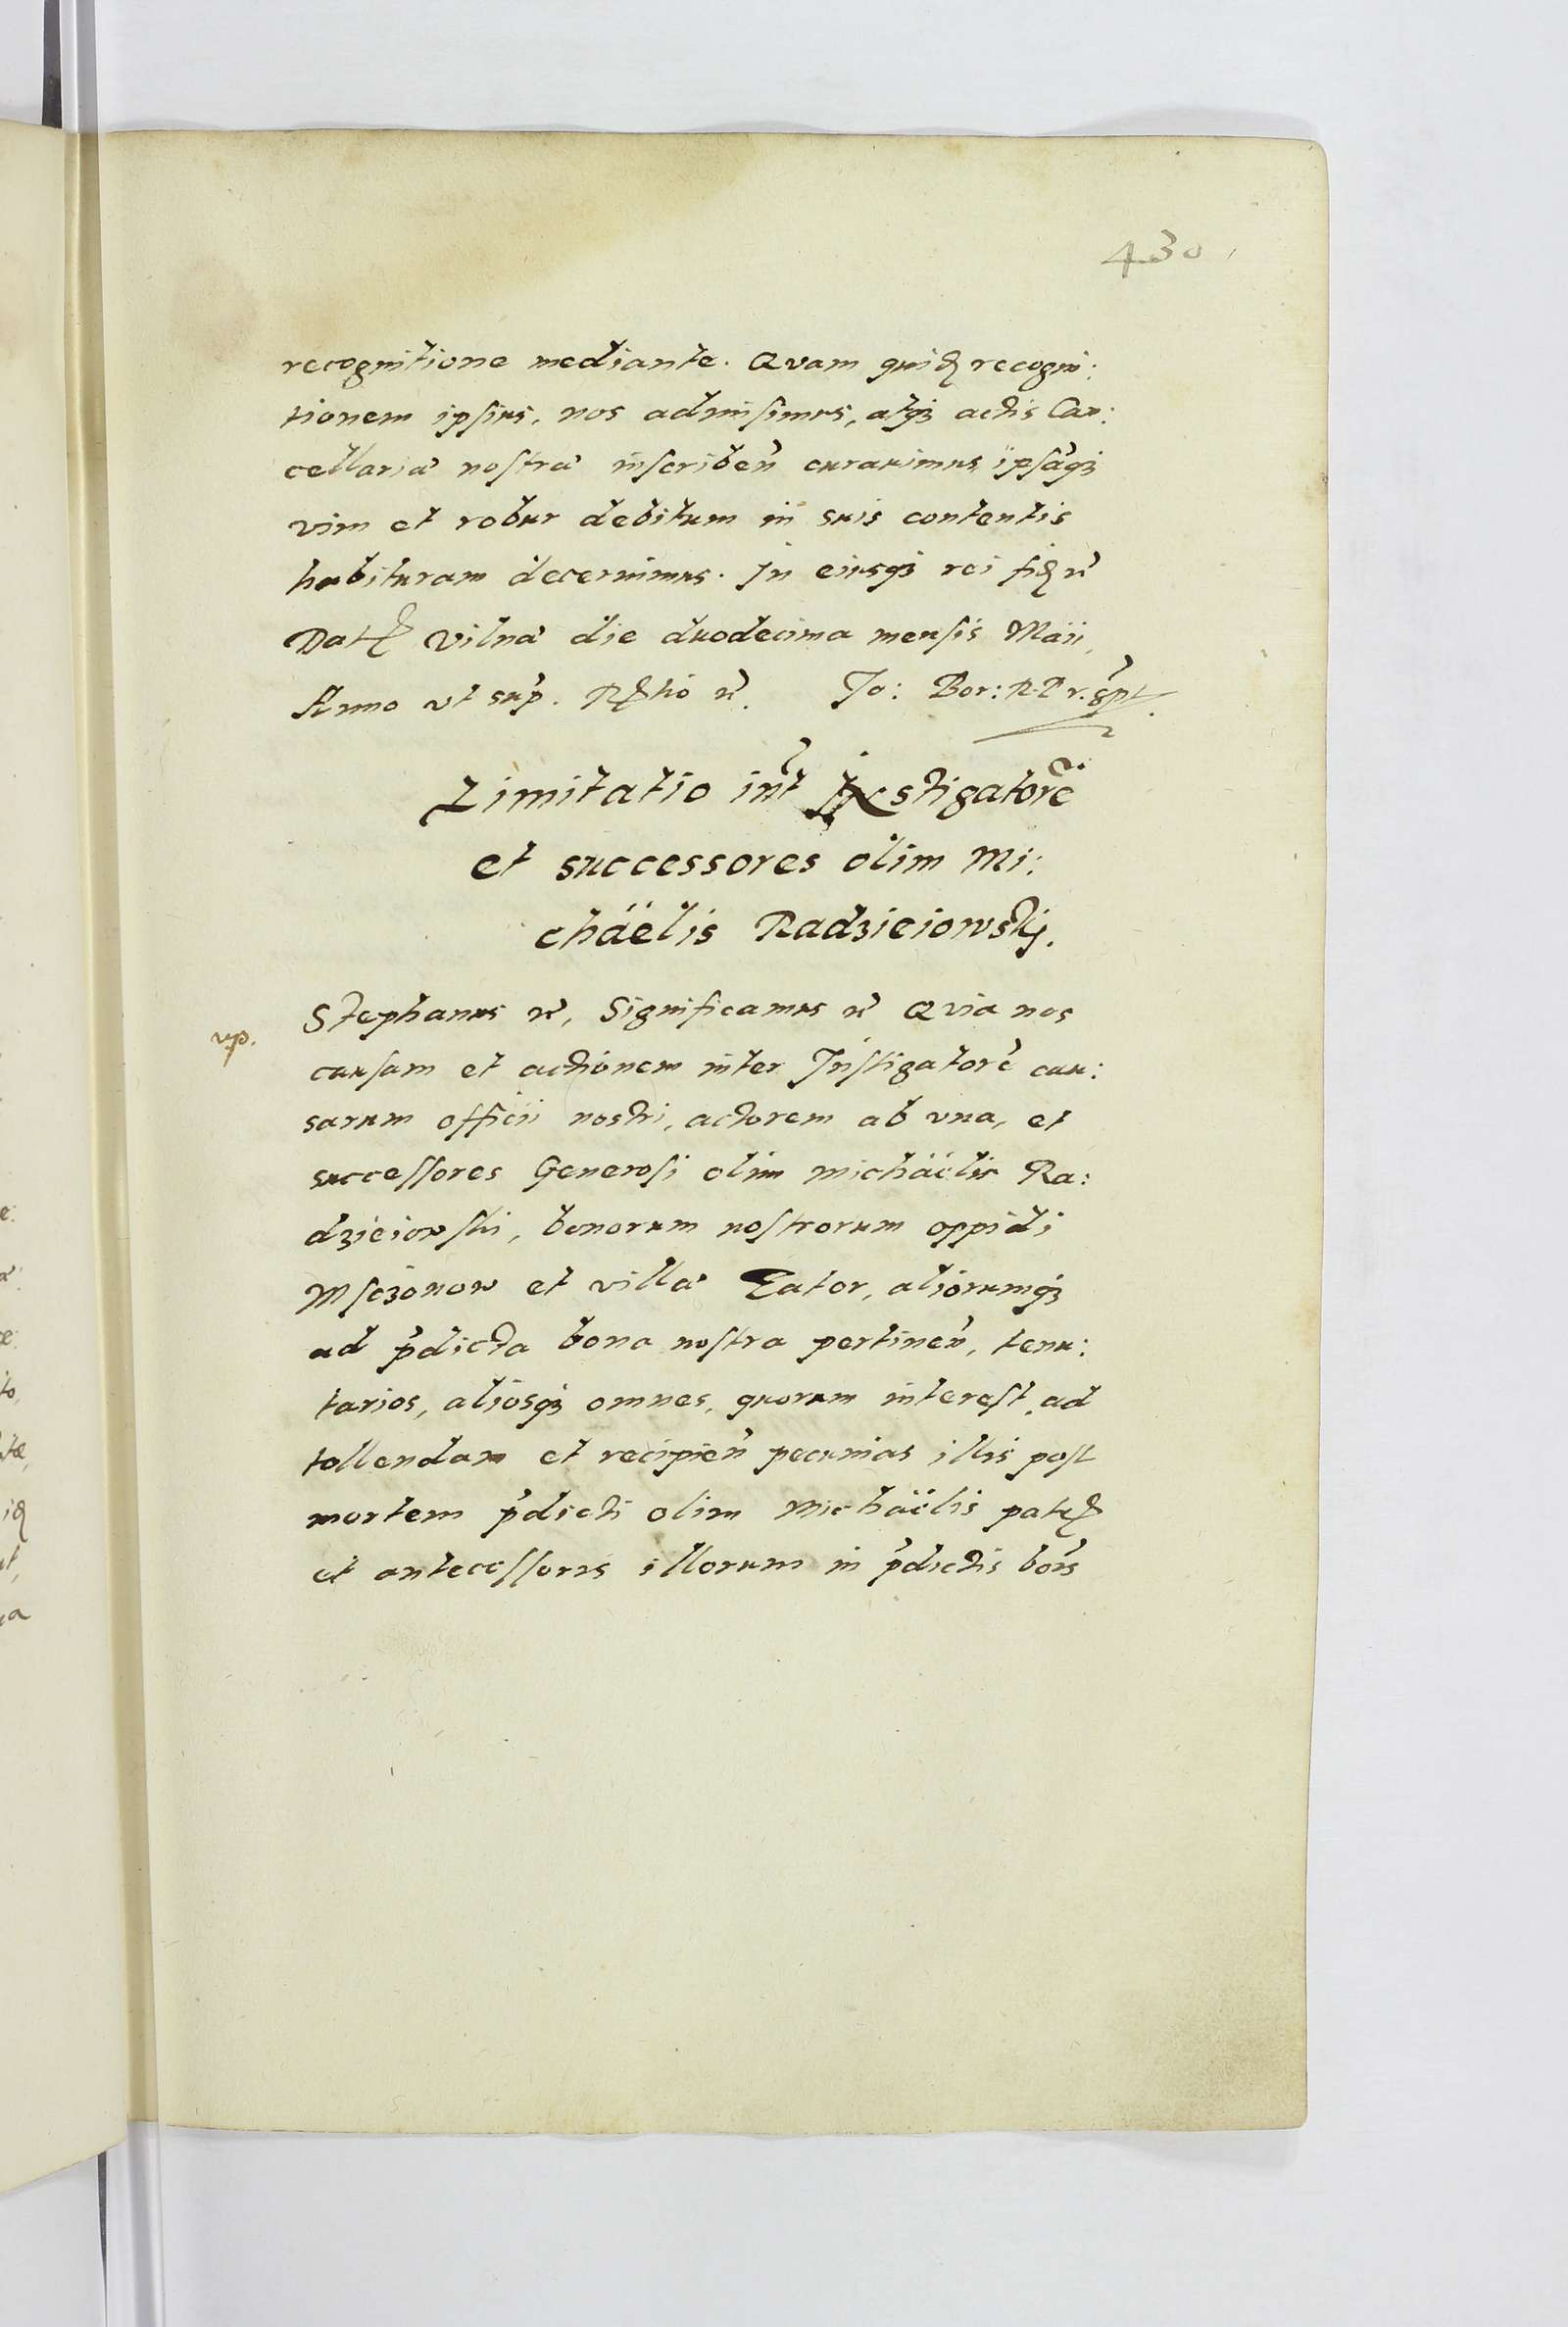 430
recognitione mediante. Quam quidẽ recogni:
tionem ipsius, nos admisimus, atq3 actis Can:
cellariæ nostræ inscribeñ curauimus ipsãq3
vim et robur debitum in suis contentis
habituram decernimus. In eiusq3 rei fidẽ etc
Datũ Vilnæ die duodecima mensis Maii,
Anno vt sup̃. Rẽtio etc. Jo: Bor: R. P. V. Cancel sspt.
Limitatio int̃ Instigatorẽ
et successores olim Mi:
chäelis Radzieiowskij.
Stephanus etc, Significamus etc Quia nos
up.
causam et actionem inter Instigatorẽ cau:
sarum officii nostri, actorem ab vna, et
successores Generosi olim Michäelis Ra:
dzieiowski, bonorum nostrorum oppidi
Msczonow et villæ Zator, aliorumq3
ad p̃dicta bona nostra pertineñ, tenu:
tarios, aliosq3 omnes, quorum interest, ad
tollendam et recipieñ pecunias illis post
mortem p̃dicti olim Michäelis patris
et antecessoris illorum in p̃dictis boñis